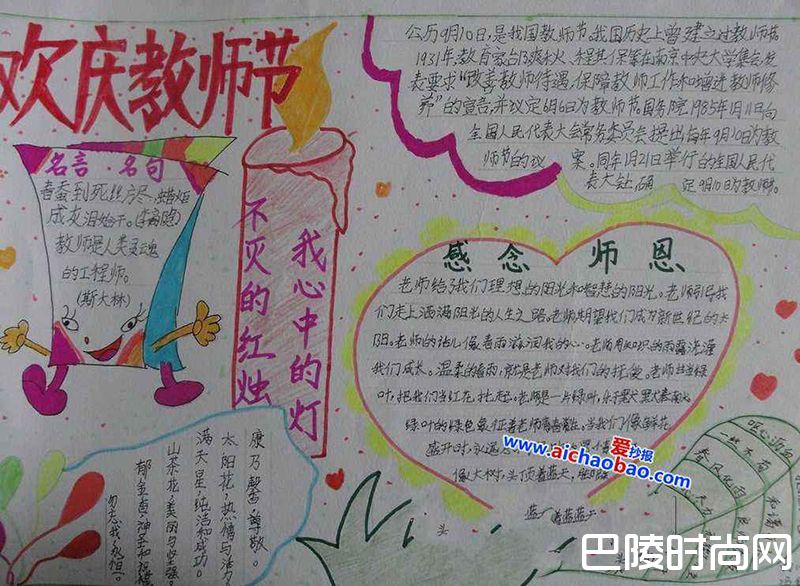 欢庆教师节
名言·名句
春蚕到死丝方尽,蜡炬
成灰泪始干。(李商隐)
教师是人类灵魂
的工程师。
(斯大林)
不灭的红烛
我心中的灯
公历9月10日,是我国教师节。我国历史上曾建立过教师节
1931年,教育家邰爽秋、程其保等在南京中央大学集会发
表要求“改善教师待遇,保障教师工作和增进教师修
养”的宣言,并议定6月6日为教师节。国务院1985年1月11日向
全国人民代表大会常务委员会提出每年9月10日为教
师节的议案。同年1月21日举行的全国人民代
表大会 确定9月10日为教师。
感念师恩
老师给了我们理想的阳光和智慧的阳光。老师引导我
们走上洒满阳光的人生之路。老师期望我们成为新世纪的太
阳。老师的话儿像春雨滋润我的心。老师用知识的雨露浇灌
我们成长。温柔的春雨,就是老师对我们的抚爱。老师甘当绿
叶,把我们当红花扶托。老师是一片绿叶,
绿叶的绿色象征着老师青春常在。当我们像鲜花
盛开时,永远
像大树,头顶着蓝天,
蓝 着蓝蓝天
头
康乃馨,尊敬。
太阳花,热情与活力
满天星,纯洁和成功。
山茶花,美丽与坚强。
郁金香,神圣和祝福
勿忘我,永恒。
春风化雨
爱抄报
www.aichaobao.com
巴陵时尚网